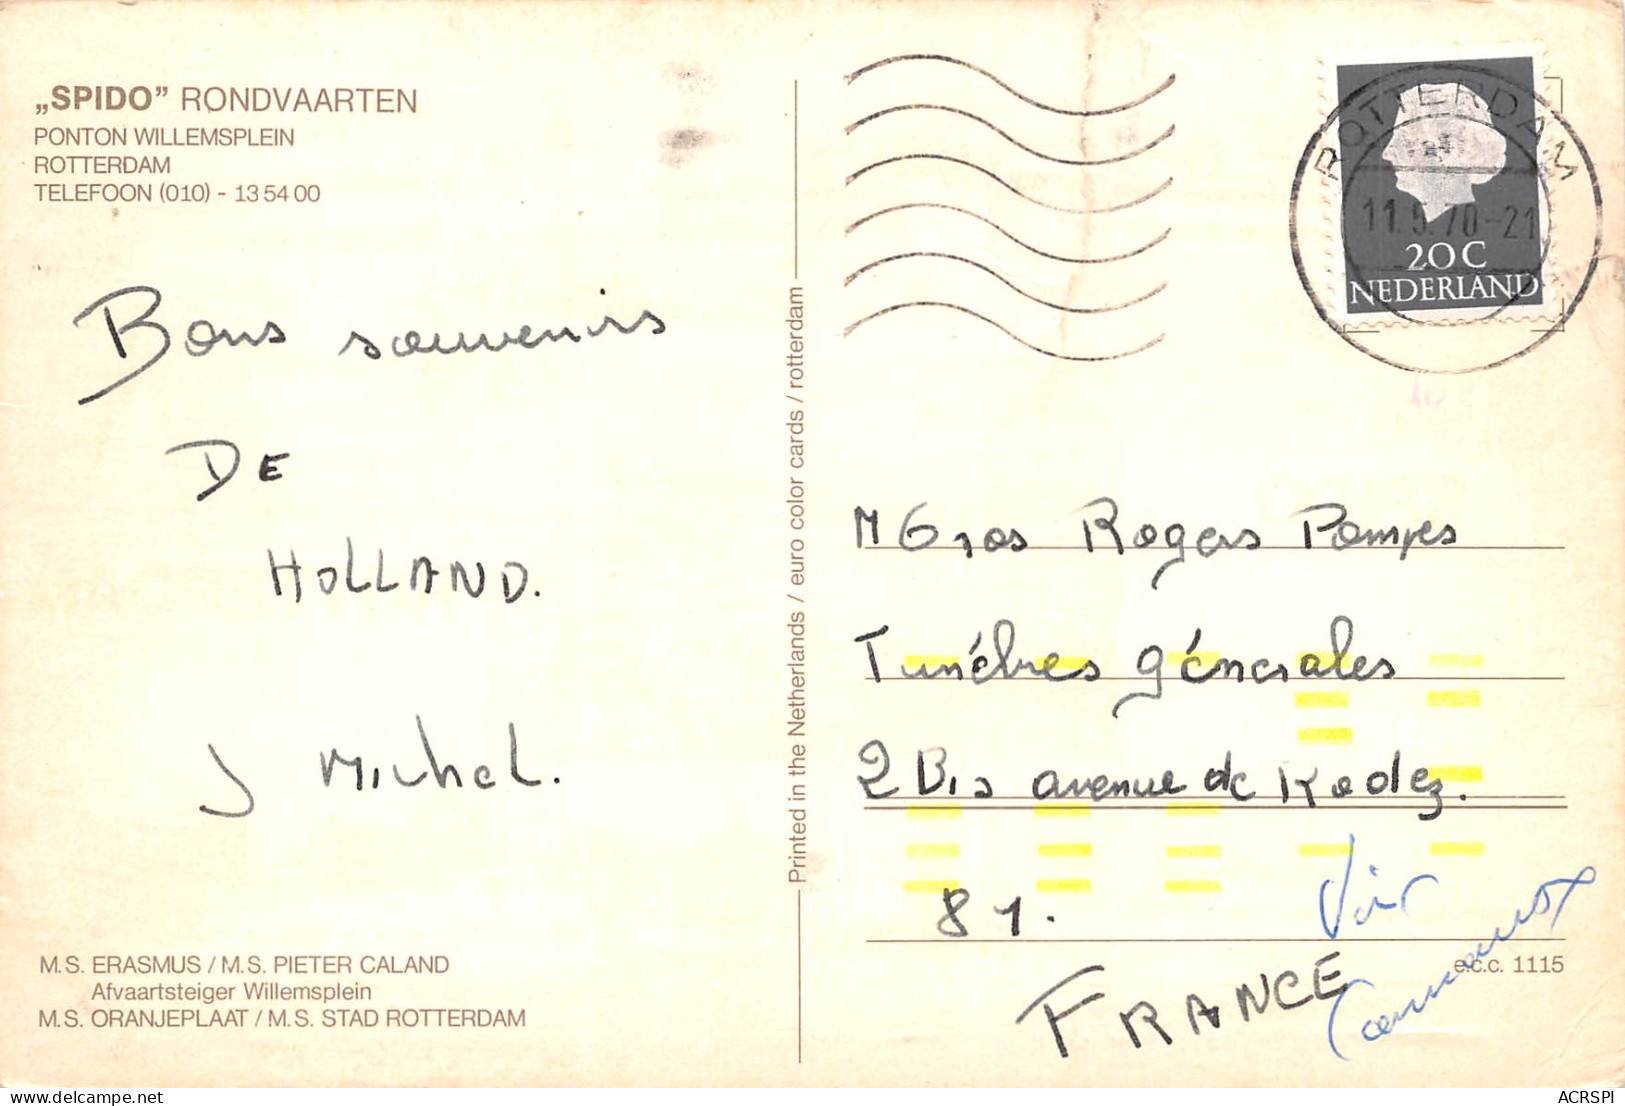 „SPIDO” RONDVAARTEN
PONTON WILLEMSPLEIN
ROTTERDAM
TELEFOON (010) - 13 54 00
Bons souvenirs
DE
HOLLAND.
J Michel.
M.S. ERASMUS / M.S. PIETER CALAND
Afvaartsteiger Willemsplein
M.S. ORANJEPLAAT / M.S. STAD ROTTERDAM
Printed in the Netherlands / euro color cards / rotterdam
ROTTERDAM
11.5.70-21
20C
NEDERLAND
M Gros Roger Pompes
Funèbres générales
2 Bis avenue de Rodez.
81.
FRANCE
Voir
e.c.c. 1115
ACRSPI